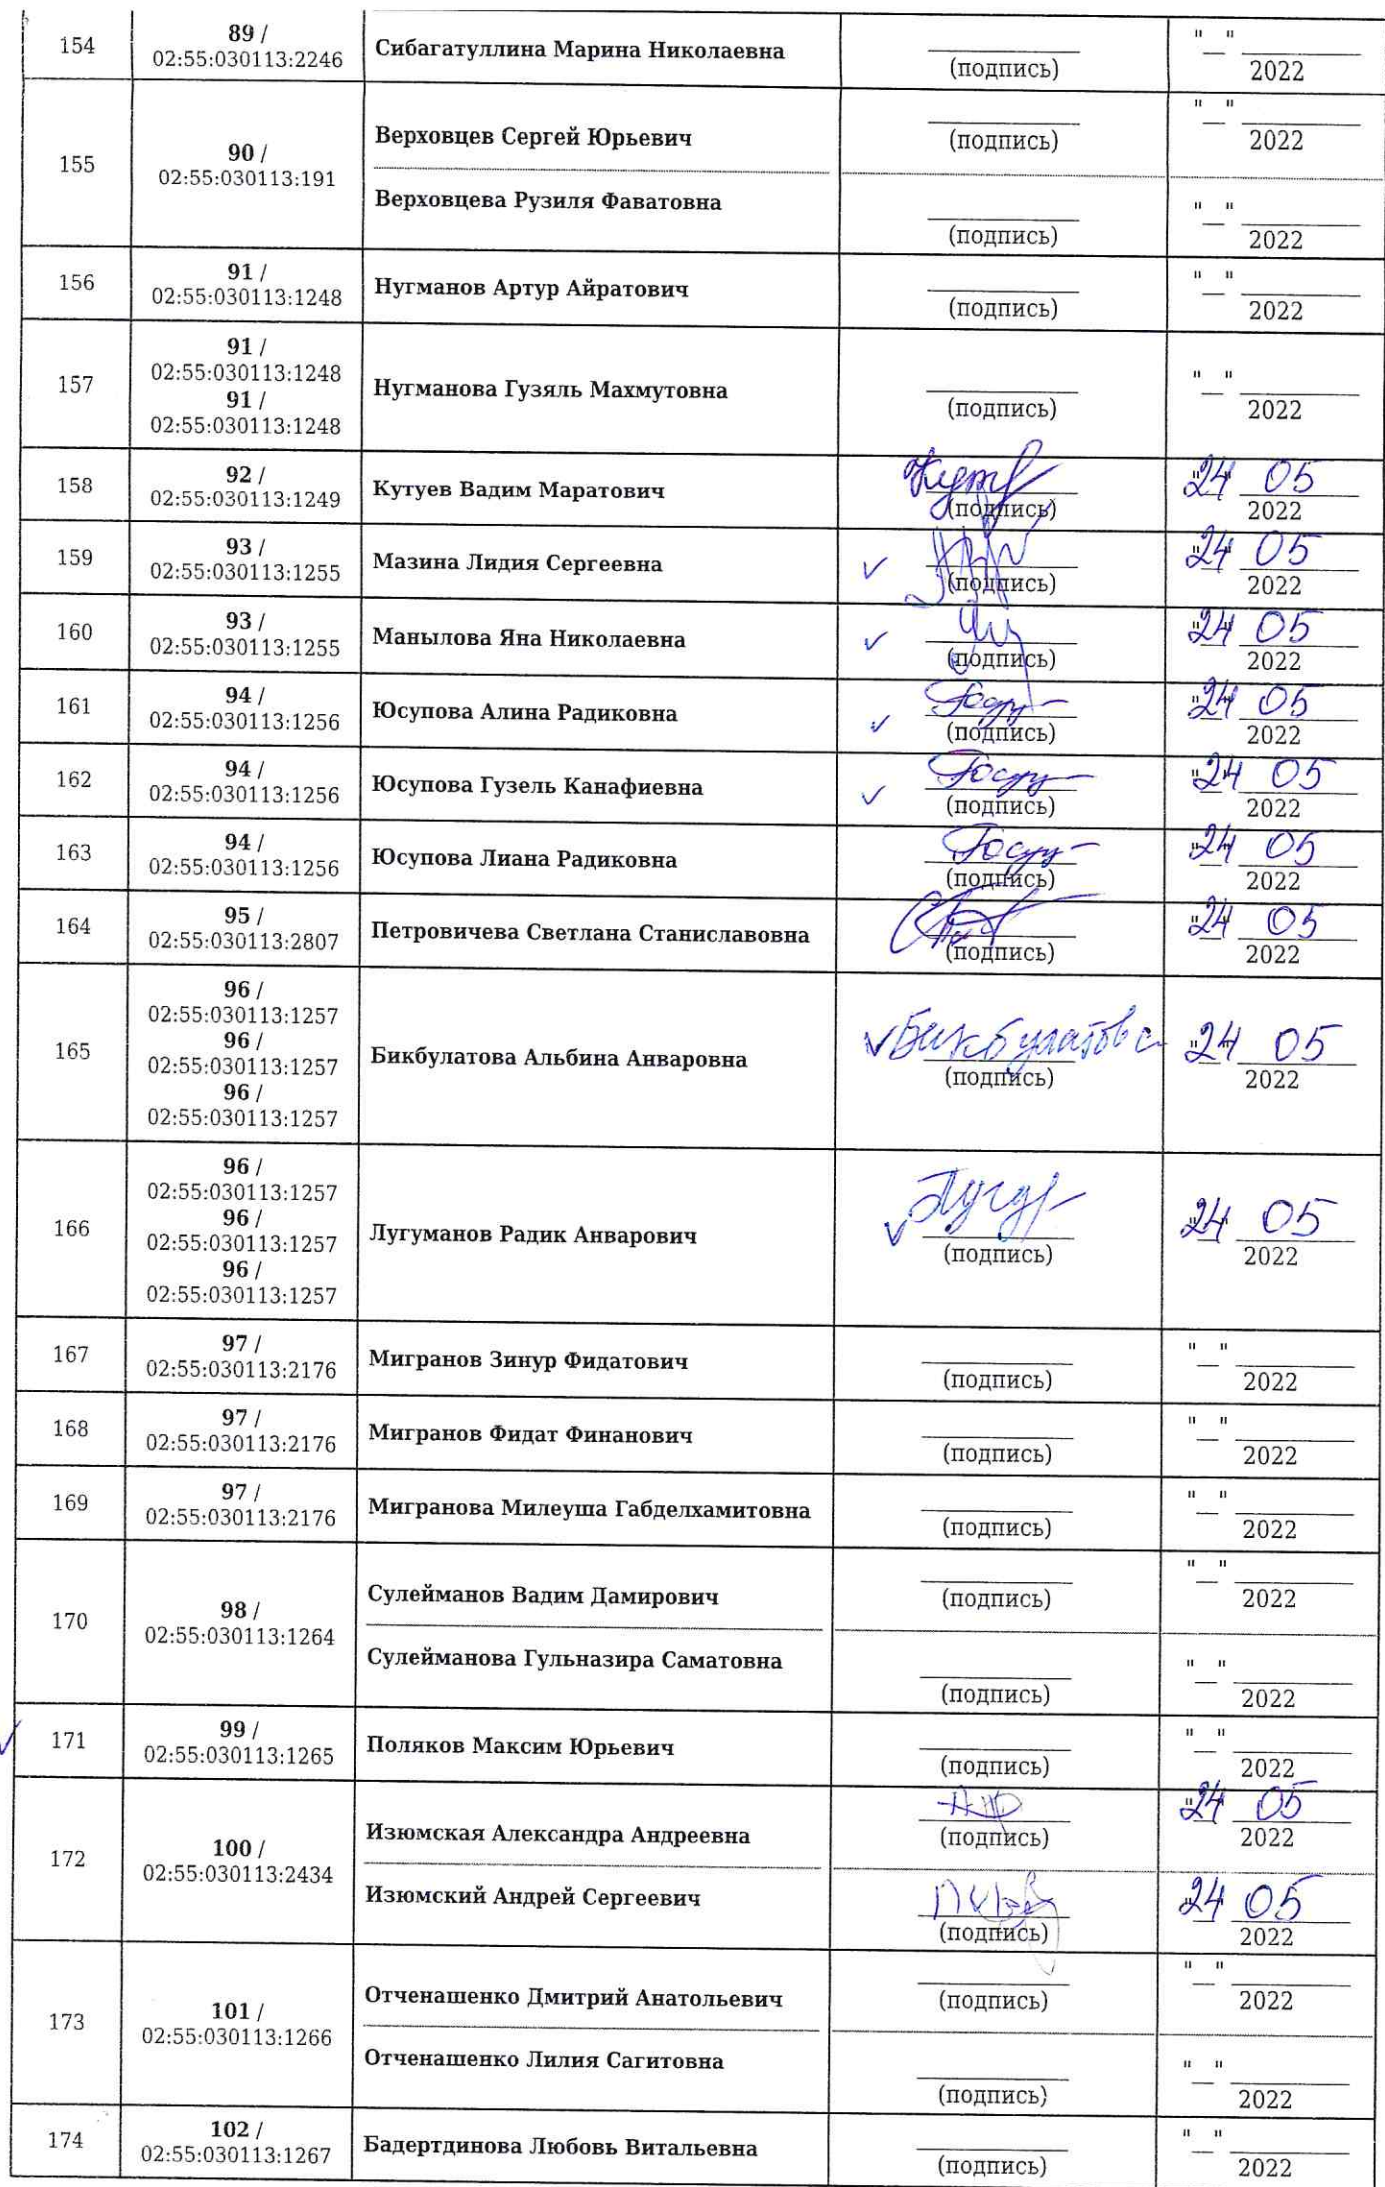 154
89 /
02:55:030113:2246
Сибагатуллина Марина Николаевна
(подпись)
"__" 
2022
155
90 /
02:55:030113:191
Верховцев Сергей Юрьевич
(подпись)
"__" 
2022
Верховцева Рузиля Фаватовна
(подпись)
"__" 
2022
156
91 /
02:55:030113:1248
Нугманов Артур Айратович
(подпись)
"__" 
2022
157
91 /
02:55:030113:1248
91 /
02:55:030113:1248
Нугманова Гузяль Махмутовна
(подпись)
"__" 
2022
158
92 /
02:55:030113:1249
Кутуев Вадим Маратович
(подпись)
"24" 05
2022
159
93 /
02:55:030113:1255
Мазина Лидия Сергеевна
(подпись)
"24" 05
2022
160
93 /
02:55:030113:1255
Манылова Яна Николаевна
(подпись)
"24" 05
2022
161
94 /
02:55:030113:1256
Юсупова Алина Радиковна
(подпись)
"24" 05
2022
162
94 /
02:55:030113:1256
Юсупова Гузель Канафиевна
(подпись)
"24" 05
2022
163
94 /
02:55:030113:1256
Юсупова Лиана Радиковна
(подпись)
"24" 05
2022
164
95 /
02:55:030113:2807
Петровичева Светлана Станиславовна
(подпись)
"24" 05
2022
165
96 /
02:55:030113:1257
96 /
02:55:030113:1257
96 /
02:55:030113:1257
Бикбулатова Альбина Анваровна
Бикбулатова
(подпись)
"24" 05
2022
166
96 /
02:55:030113:1257
96 /
02:55:030113:1257
96 /
02:55:030113:1257
Лугуманов Радик Анварович
(подпись)
"24" 05
2022
167
97 /
02:55:030113:2176
Мигранов Зинур Фидатович
(подпись)
"__" 
2022
168
97 /
02:55:030113:2176
Мигранов Фидат Финанович
(подпись)
"__" 
2022
169
97 /
02:55:030113:2176
Мигранова Милеуша Габделхамитовна
(подпись)
"__" 
2022
170
98 /
02:55:030113:1264
Сулейманов Вадим Дамирович
(подпись)
"__" 
2022
Сулейманова Гульназира Саматовна
(подпись)
"__" 
2022
171
99 /
02:55:030113:1265
Поляков Максим Юрьевич
(подпись)
"__" 
2022
172
100 /
02:55:030113:2434
Изюмская Александра Андреевна
(подпись)
"24" 05
2022
Изюмский Андрей Сергеевич
(подпись)
"24" 05
2022
173
101 /
02:55:030113:1266
Отченашенко Дмитрий Анатольевич
(подпись)
"__" 
2022
Отченашенко Лилия Сагитовна
(подпись)
"__" 
2022
174
102 /
02:55:030113:1267
Бадертдинова Любовь Витальевна
(подпись)
"__" 
2022